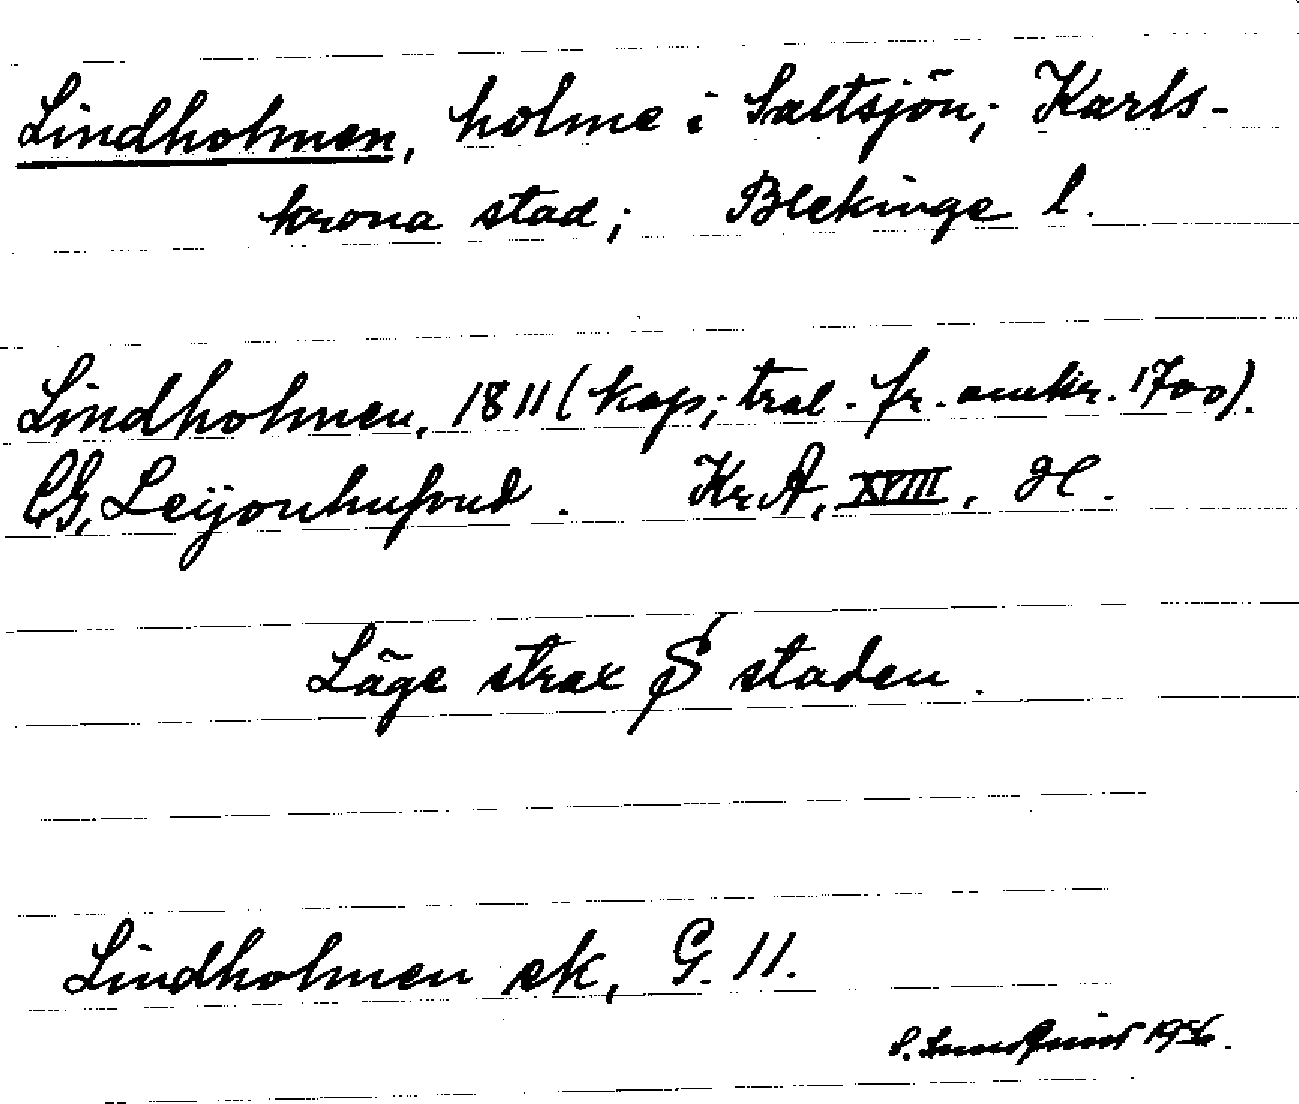 Lindholmen, holme i Saltsjön; Karls-
krona stad; Blekinge l.
Lindholmen, 1811 (kop; tral. fr. omkr. 1700).
CG, Leijonhufvud. KrA, XVIII, H.
Läge strax S staden.
Lindholmen ek, G 11.
S. Lundquist 1956.